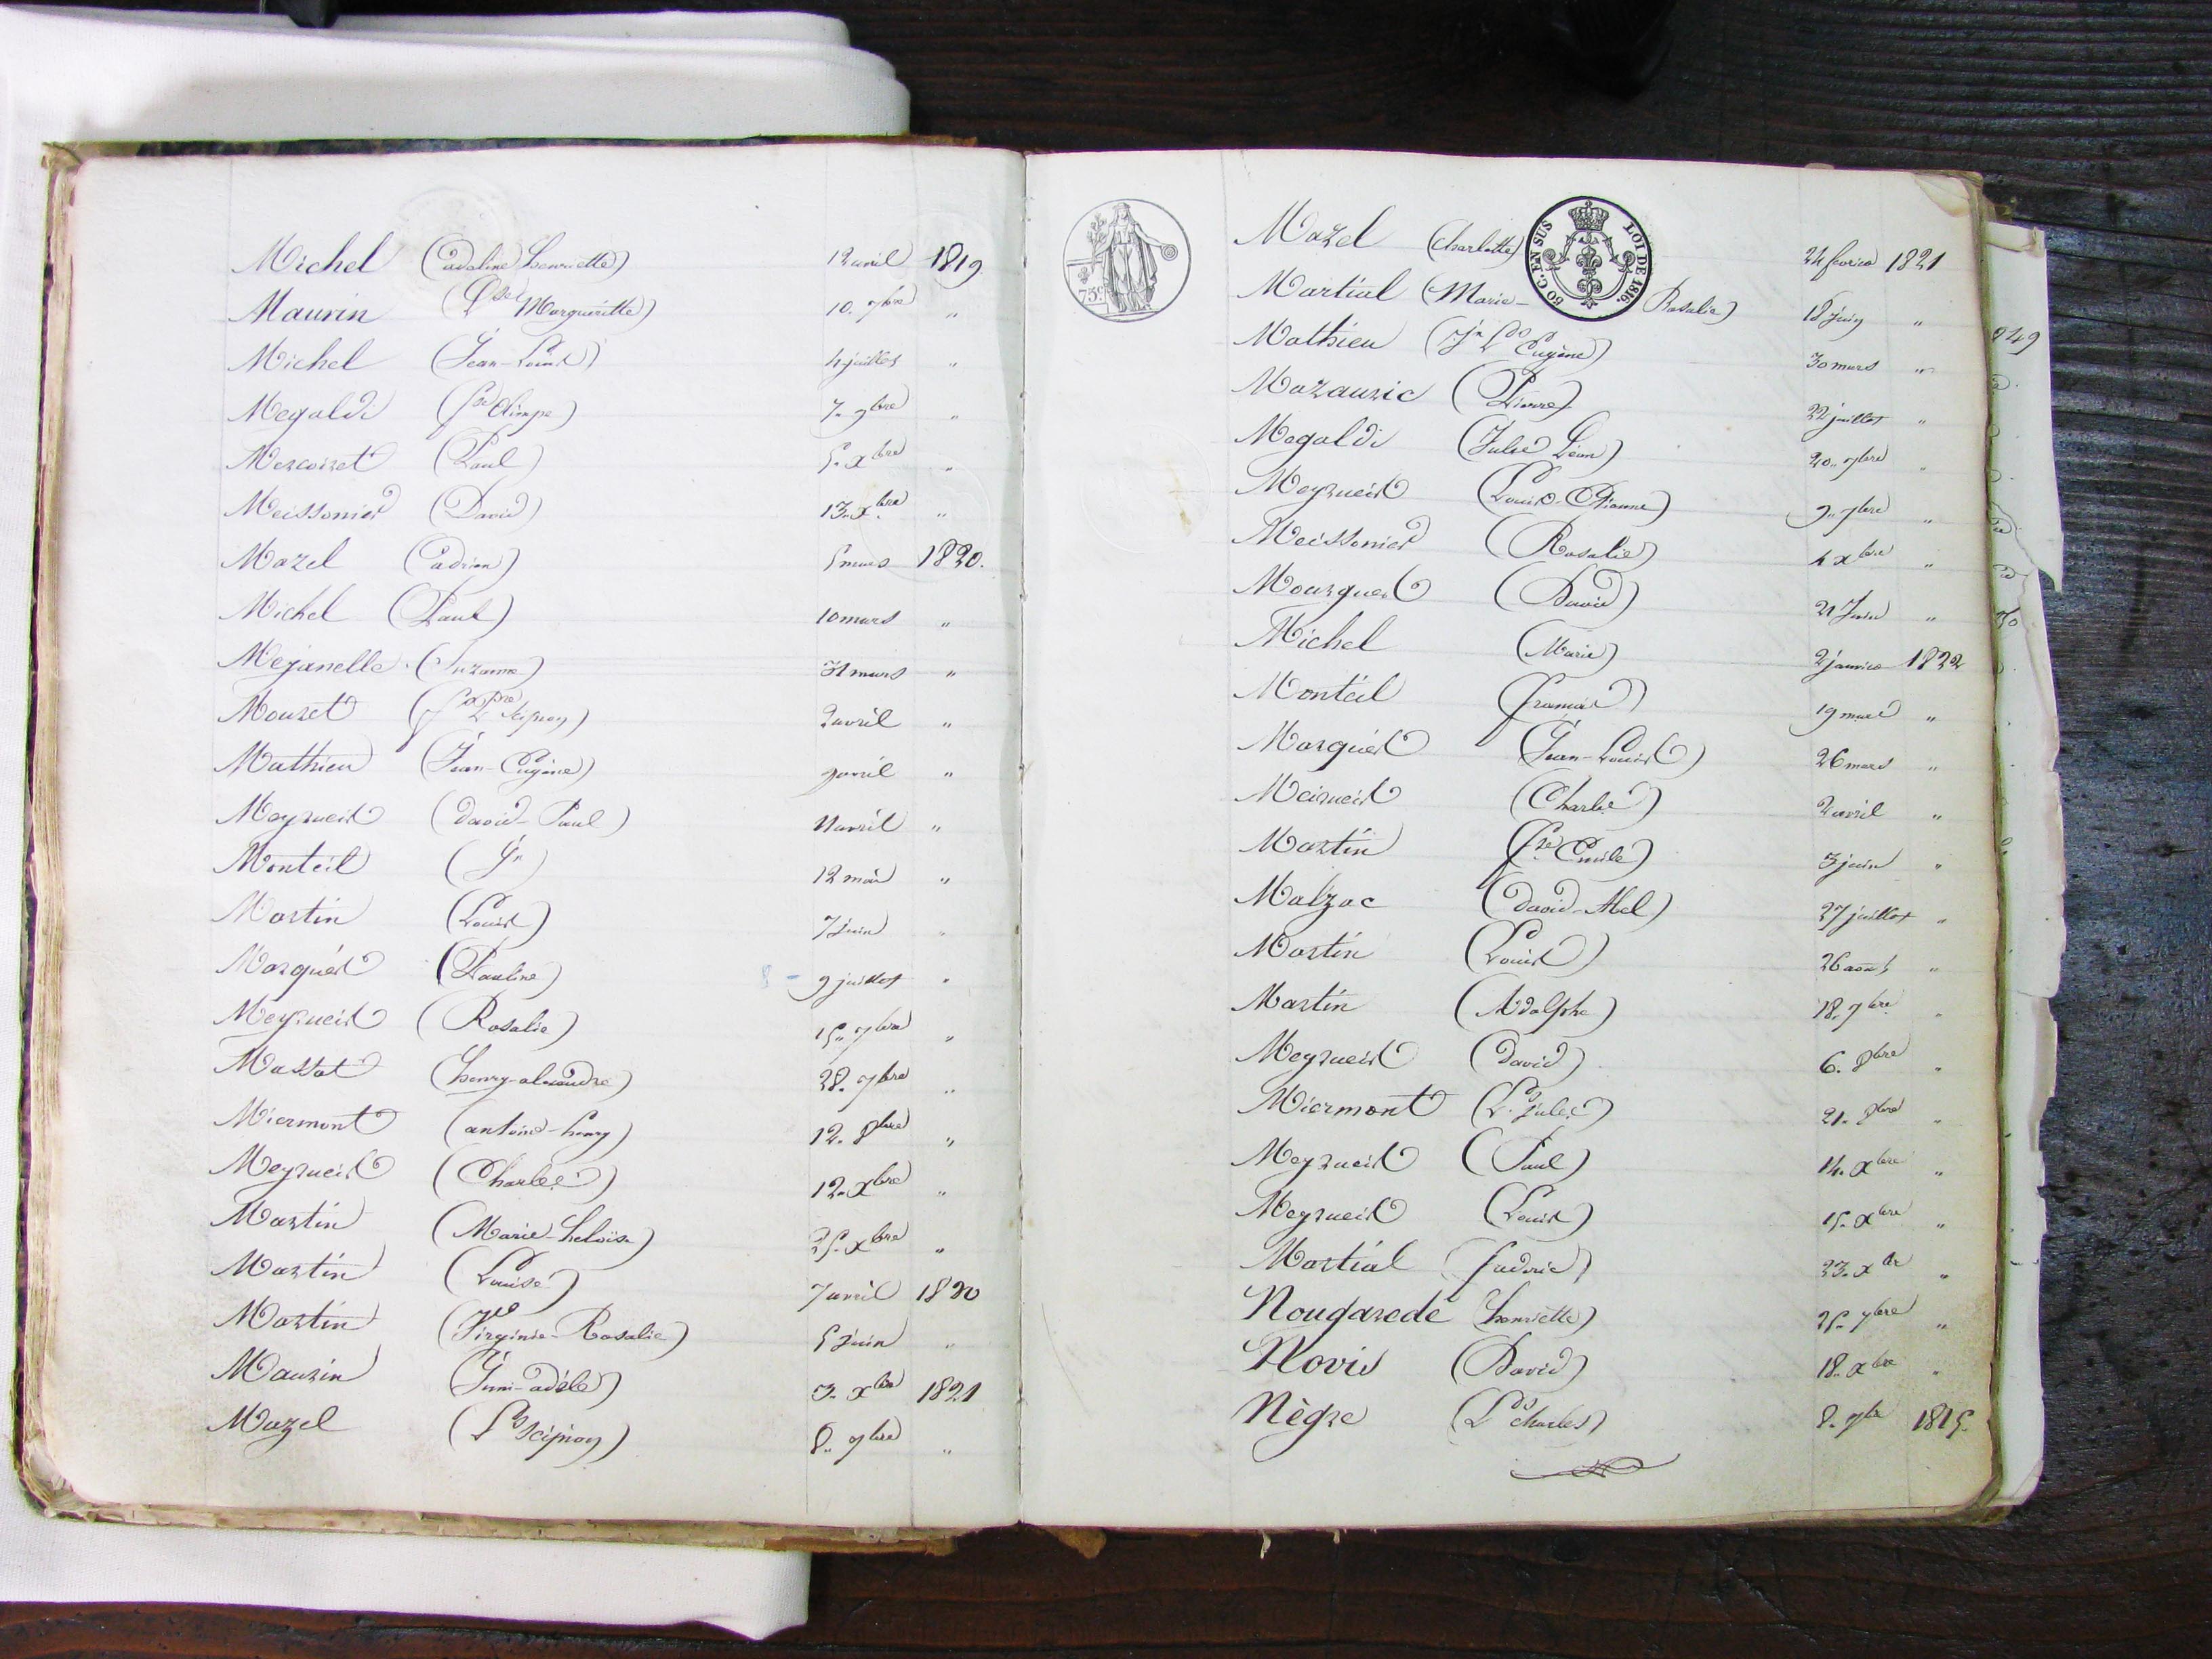 Michel (adeline henriette) 12 avril 1819
Maurin (Lse Margueritte) 10. 7bre "
Michel (Jean-Louis) 4 juillet "
Megaldi (fse Olimpe) 7. 9bre "
Mercoiret (Paul) 5. Xbre "
Meissonier (David) 13. Xbre "
Mazel (adrien) 5 mars 1820.
Michel (Paul) 10 mars "
Mejanelle (Suzanne) 31 mars "
Mouret Scipion) 2 avril "
Mathieu (Jean-Eugène) 9 avril "
Meyrueis (David-Paul) 11 avril "
Monteil (Jn) 12 mai "
Martin (Louis) 7 Juin "
Marquès (Pauline) 9 juillet "
Meyrueis (Rosalie) 15. 7bre "
Massat (henry-alexandre) 28. 7bre "
Miermont (antoine-henry) 12. 8bre "
Meyrueis (Charles) 12. Xbre "
Martin (Marie-heloïse) 25. Xbre "
Martin (Louise) 7 avril 1820
Martin (Virginie-Rosalie) 5 Juin "
Maurin adèle) 3. Xbre 1821
Mazel (Ls Scipion) 8. 7bre "
75c
50 C. EN SUS
LOI DE 1816.
Mazel (Charlotte) 24 fevrier 1821
Martial (Marie-Rosalie) 18 juin "
Mathieu (Jn Ls Eugène) 30 mars "
Mazauric (Pierre) 22 juillet "
Megaldi (Jules Léon) 20. 7bre "
Meyrueis (Louis-Etienne) 9. 7bre "
Meissonier (Rosalie) 4 Xbre "
Mourgues (David) 21 Juin "
Michel (Marie) 2 janvier 1822
Monteil (francois) 19 mars "
Marquès (Jean-Louis) 26 mars "
Meirueis (Charles) 2 avril "
Martin (fse Emile) 3 juin "
Malzac (David-Abel) 27 juillet "
Martin (Louis) 26 août "
Martin (Adolphe) 18. 7bre "
Meyrueis (David) 6. 8bre "
Miermont (Ls Jules) 21. 8bre "
Meyrueis (Paul) 14. Xbre "
Meyrueis (Louis) 15. Xbre "
Martial (frederic) 23. Xbre "
Nougarede (henriette) 25. 7bre "
Novis (David) 18. Xbre "
Nègre (Ls charles) 8. 7bre 1815.